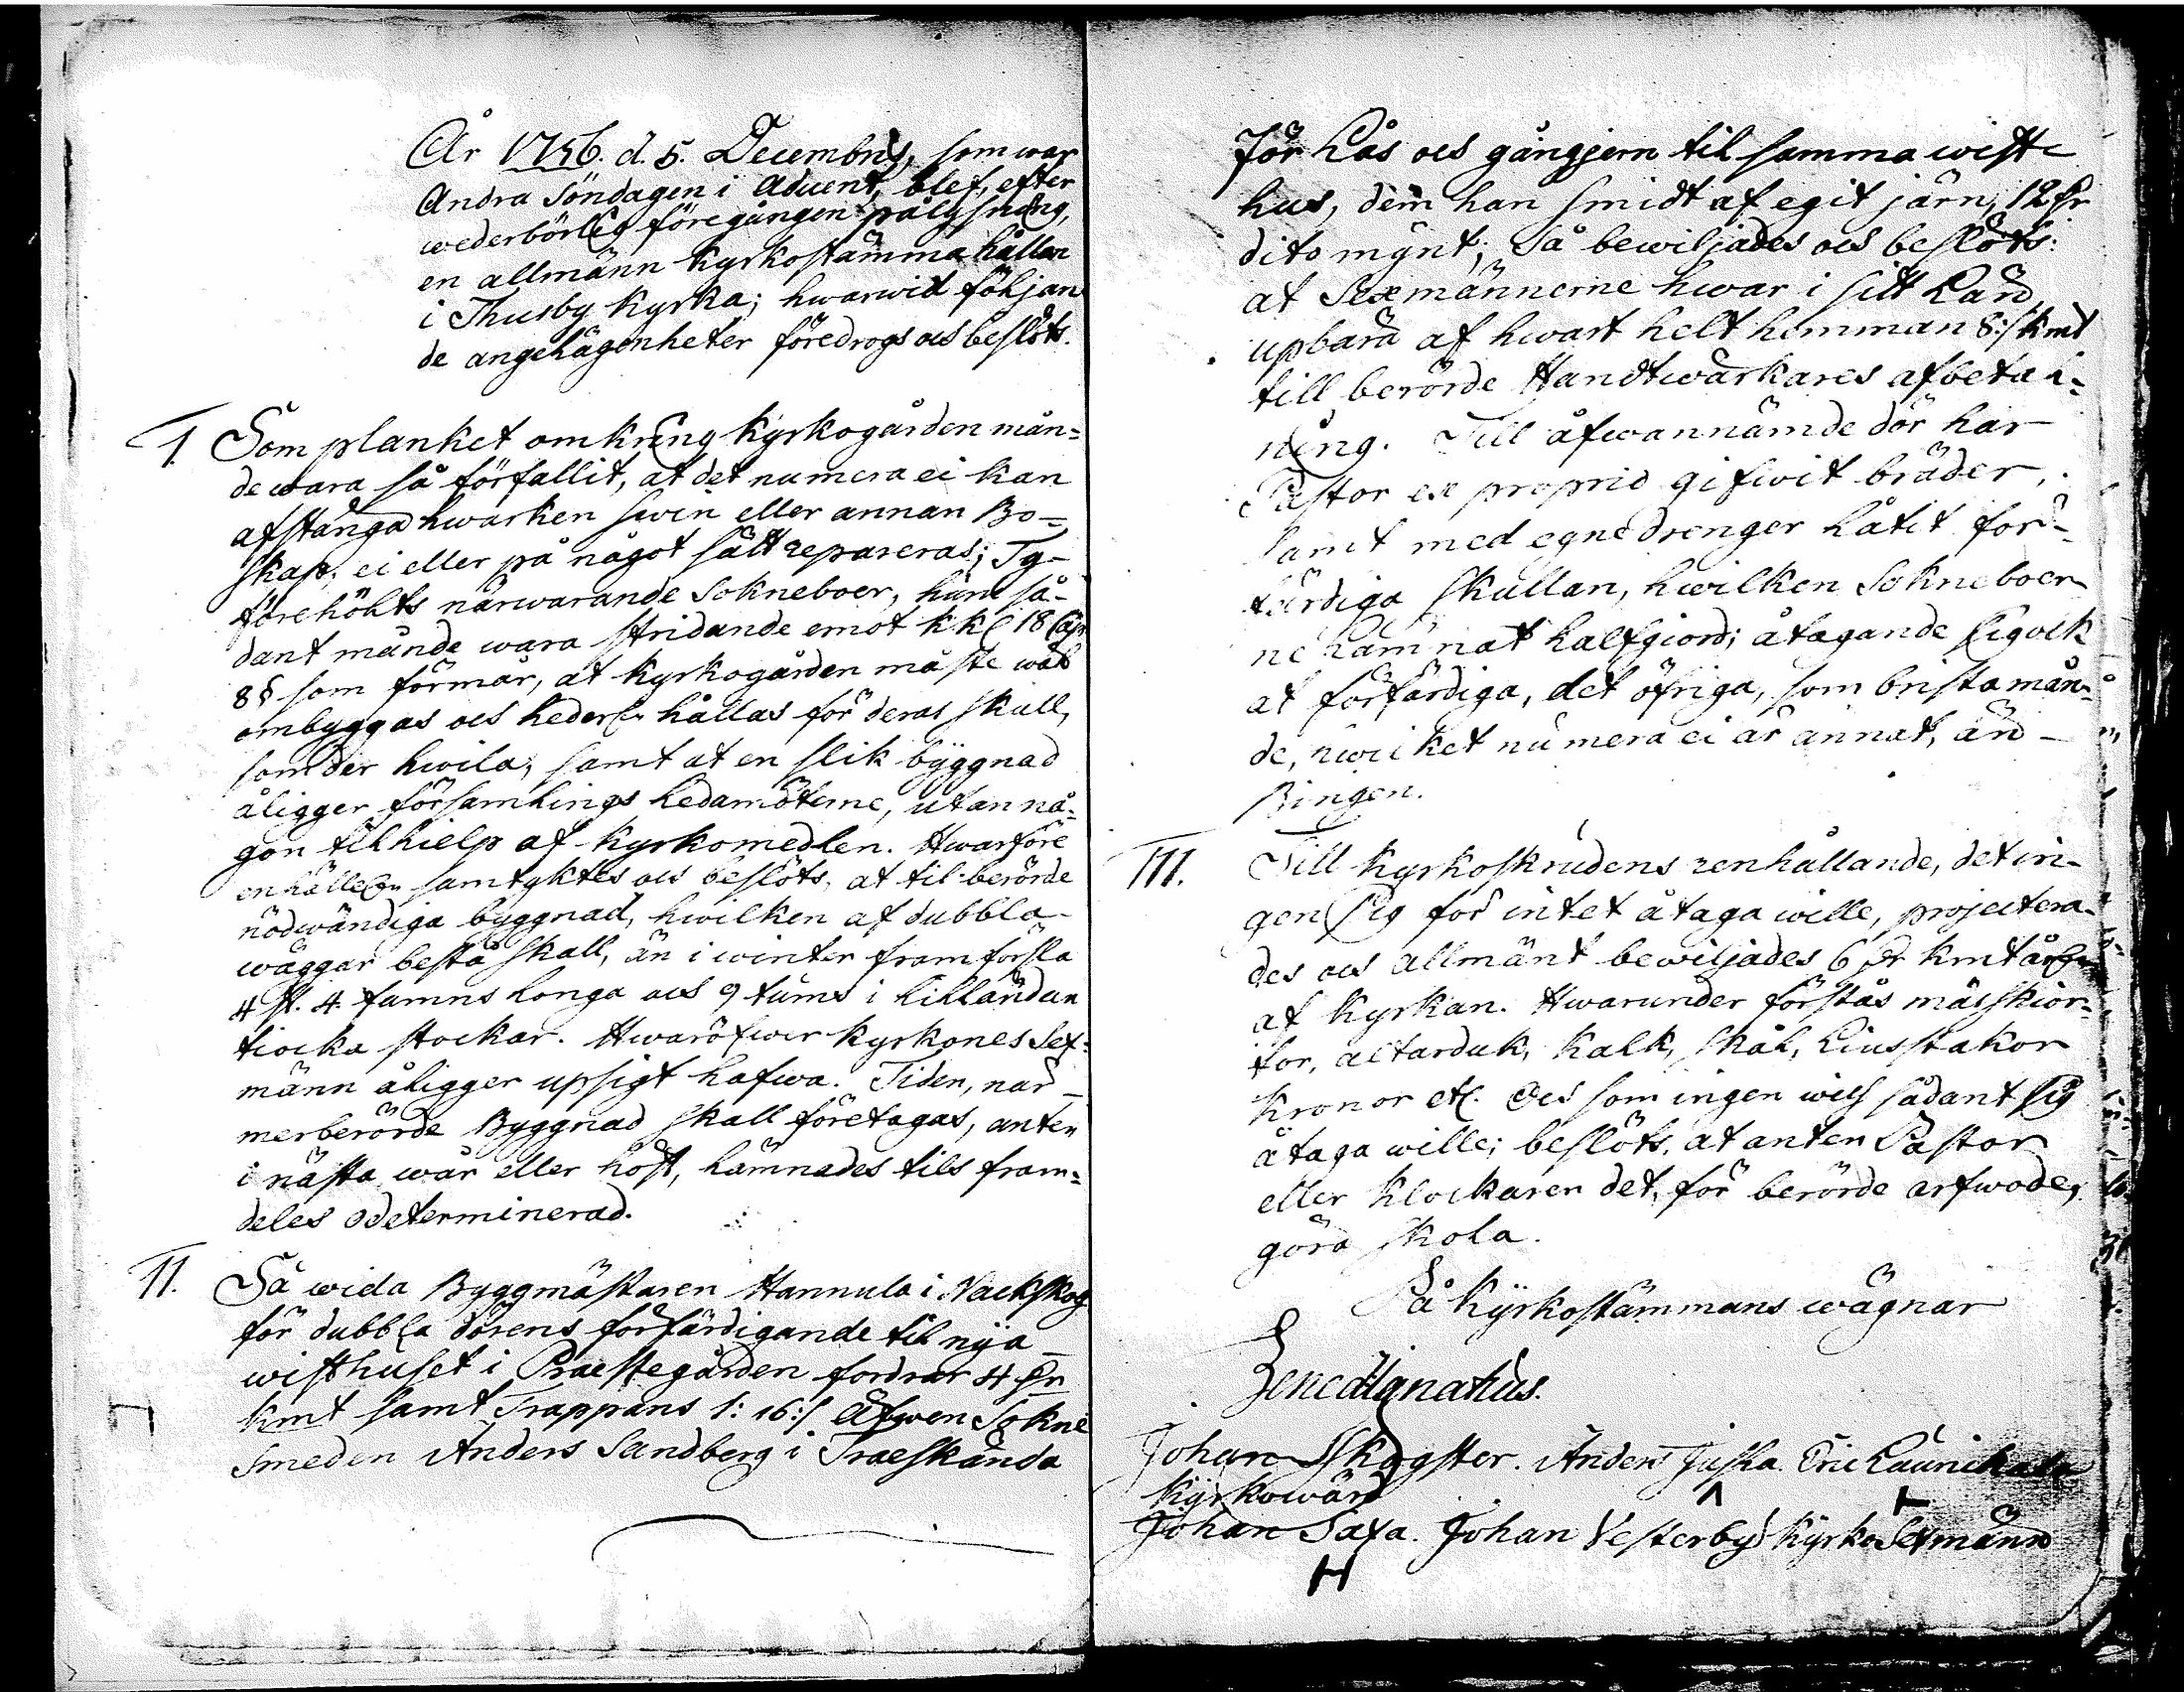 År 1756. d. 5. Decembris, som war
Andra Söndagen i Advent, blef, efter
wederbörlig föregången pålysning,
en allmänn Kyrkostämma hållen
i Thusby Kyrka; hwarwid följan
de angelägenheter föredrogs och beslöts.
I. Som planket omkring Kyrkogården mån-
de wara så förfallit, at det numera ei kan
afstänga hwarken swin eller annan Bo-
skap, ei eller på något sätt repareras; Ty
förehölts närwarande Sokneboer, huru så-
dant månde wara stridande emot KKl 18 Cap.
8§ som förmår, at Kyrkogården måste wäl
ombyggas och hederl. hållas för deras skull,
som der hwila, samt at en slik byggnad
åligger församlings ledamöterne, utan nå-
gon tilhielp af Kyrkomedlen. Hwarföre
enhälleln samtyktes och beslöts, at til berörde
nödwändiga byggnad, hwilken af dubbla
wäggar bestå skall, än i winter framforsla
4 st. 4 famns longa och 9 tums i lilländan
tiocka stockar. Hwaröfwer Kyrkones Sex-
männ åligger upsigt hafwa. Tiden, när
merberörde Byggnad skall företagas, anten
i nästa wår eller höst, lämnades tils fram-
deles odeterminerad.
II. Så wida Byggmästaren Hannula i Nackskog
för dubbla dörens förfärdigande til nya
wisthuset i Praestegården fordrar 4 Dr
kmt samt Trappans 1: 16:/ Äfwen Sokne
Smeden Anders Sandberg i Traeskända
för Lås och gångjern til samma wist
hus, dem han smidt af egit järn, 12 Dr
dito mynt; Så bewiljades och beslöts:
at Sexmännerne hwar i sitt Lärd
upbära af hwart helt hemman 8:/ kmt
till berörde Handtwärkares afbetal-
ning. Till åfwannämde dör har
Pastor ex proprio gifwit bräder,
samt med egne drenger låtit för-
färdiga skullan, hwilken Sokneboer
ne lämnat halfgiord; åtagande sig ock
at förfärdiga, det öfriga, som brista mån-
de, hwilket numera ei är annat, än
Bingen.
III. Till Kyrkoskrudens renhållande, det in-
gen sig för intet åtaga wille, projectera-
des och allmänt bewiljades 6 Dr kmt årln
af Kyrkan. Hwarunder förstås mässkior-
tor, altarduk, Kalk, skål, Liusstakar
Kronor etc. Och som ingen wiss sådant sig
åtaga wille; beslöts, at anten Pastor
eller Klockaren det, för berörde arfwode,
göra skola.
På Kyrkostämmans wägnar
Bened. Ignatius.
Johan Skogster. Anders Juska. Eric Launikala
Kyrkowärd
Johan Saxa. Johan Vesterby Kyrko Sexmänn